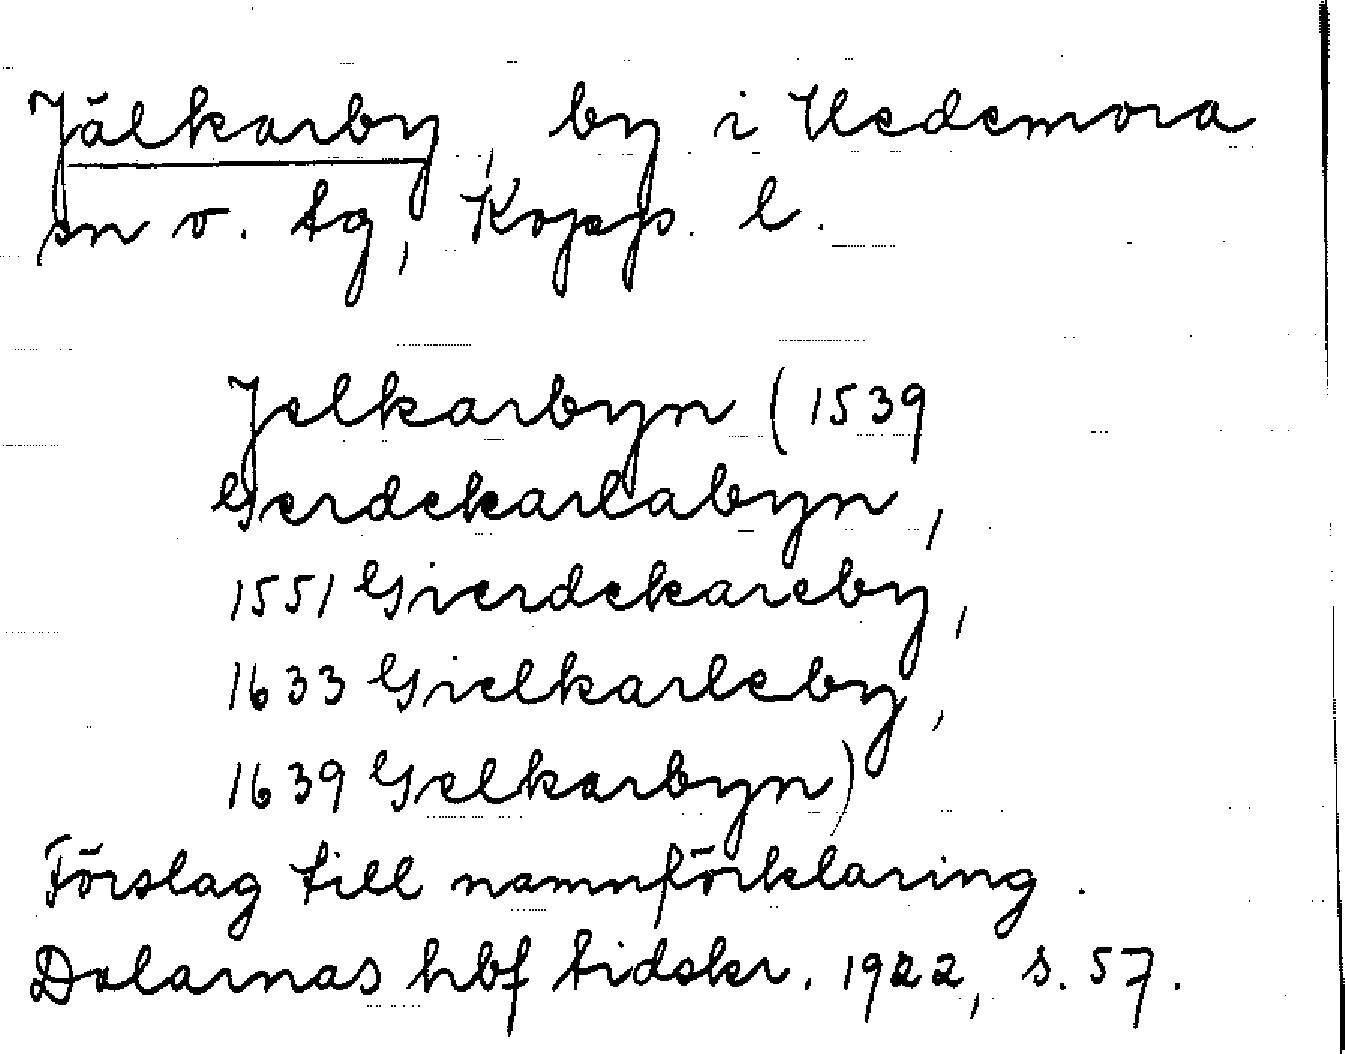 Jälkarby, by i Hedemora
sn o. tg, Kopp. l.
Jelkarbyn (1539
Gerdekarlabyn,
1551 Gierdekareby,
1633 Gielkarleby,
1639 Gelkarbyn)
Förslag till namnförklaring.
Dalarnas hbf tidskr. 1922, s. 57.